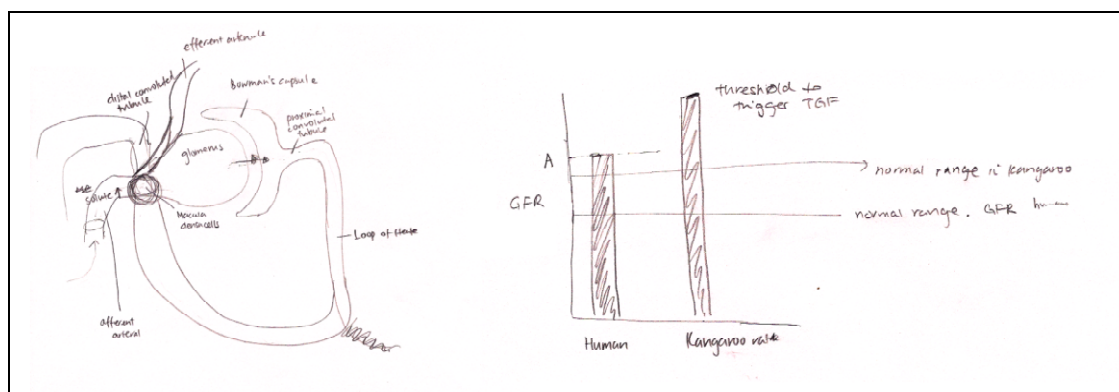 efferent arteriole
distal convoluted
tubule
Bowman's capsule
proximal
convoluted
tubule
glomerus
solute ↑
Macula
densa cells
Loop of Henle
afferent
arteral
threshold to
trigger TGF
A
normal range in Kangaroo
GFR
normal range. GFR
Human
Kangaroo rat